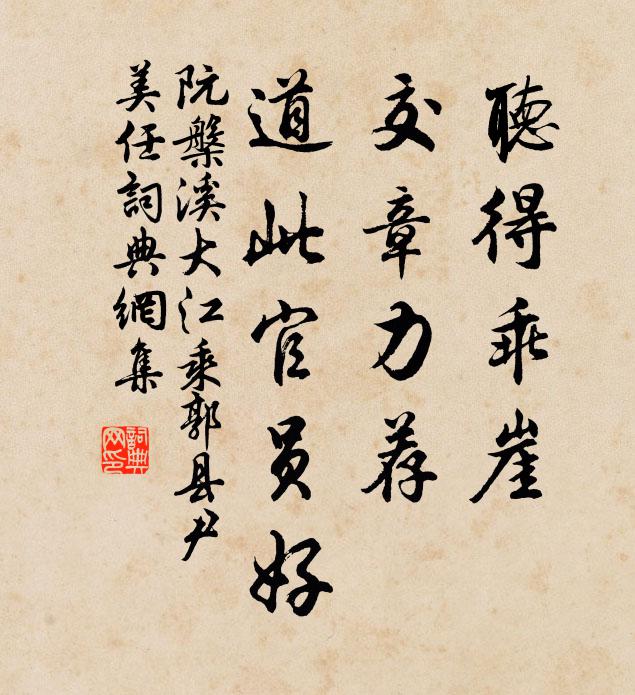 聽得乖崖
交章力荐
道此官員好
阮槃溪大江乘郭县尹
美任詞典網集
詞典网印